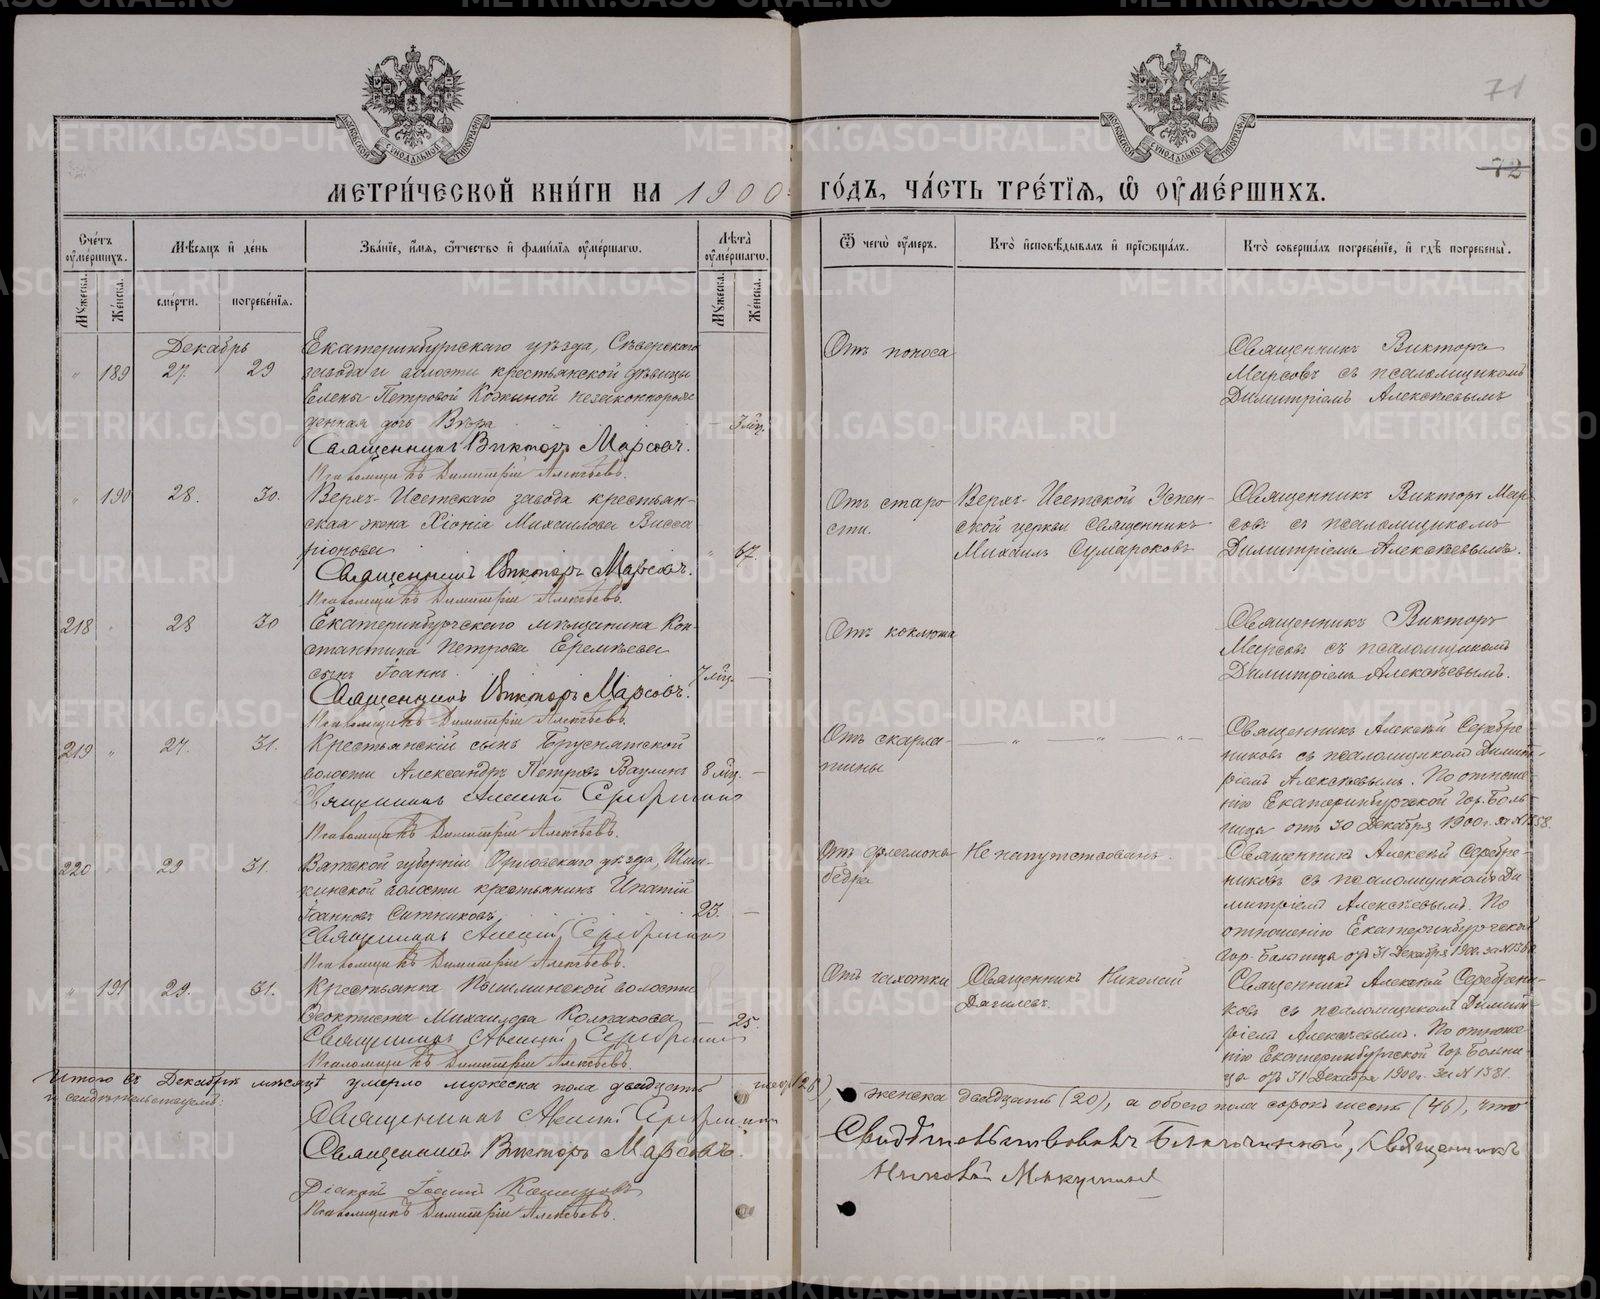 71
72
МЕТРИ́ЧЕСКОЙ КНИ́ГИ НА 1900 ГО́ДЪ, ЧА́СТЬ ТРЕ́ТІѦ, Ѡ ОУ҆МЕ́РШИХЪ.
Сче́тъ оу҆ме́ршихъ.
Мѣ́сѧцъ и҆ де́нь
Зва́ніе, и҆́мѧ, ѻ҆́тчество и҆ фами́лїѧ оу҆ме́ршагѡ.
Лѣ́та оу҆ме́ршагѡ.
Ѿ чегѡ̀ оу҆́меръ.
Кто̀ и҆сповѣ́дывалъ и҆ прїѡбща́лъ.
Кто̀ соверша́лъ погребе́нїе, и҆ гдѣ̀ погребены̀.
Мꙋ́жеска.
Же́нска.
сме́рти.
погребе́нїѧ.
Мꙋ́жеска.
Же́нска.
Декабрь
" 189 27. 29
Екатеринбургскаго уѣзда, Сѣверскаго
завода и волости крестьянской дѣвицы
Елены Петровой Козкиной незаконнорож
денная дочь Вѣра
– 3 мц.
Священникъ Викторъ Марсовъ.
Псаломщикъ Димитрій Алексѣевъ.
Отъ поноса
Священникъ Викторъ
Марсовъ съ псаломщикомъ
Димитріемъ Алексѣевымъ
" 190 28. 30.
Верхъ-Исетскаго завода крестьян-
ская жена Хіонія Михаилова Висса
ріонова
" 67.
Священникъ Викторъ Марсовъ.
Псаломщикъ Димитрій Алексѣевъ.
Отъ старо
сти.
Верхъ-Исетской Успен-
ской церкви священникъ
Михаилъ Сумароковъ
Священникъ Викторъ Мар
совъ съ псаломщикомъ
Димитріемъ Алексѣевымъ.
218 " 28 30
Екатеринбургскаго мѣщанина Кон-
стантина Петрова Еремѣева
сынъ Іоаннъ.
7 мц. –
Священникъ Викторъ Марсовъ.
Псаломщикъ Димитрій Алексѣевъ.
Отъ коклюша
Священникъ Викторъ
Марсовъ съ псаломщикомъ
Димитріемъ Алексѣевымъ.
219 " 27. 31.
Крестьянскій сынъ Бруснятской
волости Александръ Петровъ Ваулинъ
8 мц. –
Священникъ Алексій Серебрениковъ
Псаломщикъ Димитрій Алексѣевъ.
Отъ скарла-
тины
– " – " – " –
Священникъ Алексѣй Серебре
никовъ съ псаломщикомъ Димит-
ріемъ Алексѣевымъ. По отноше-
нію Екатеринбургской Гор. Боль-
ницы отъ 30 Декабря 1900 г. за N 1558.
220 " 29 31.
Вятской губерніи Орловскаго уѣзда,
кинской волости крестьянинъ Ипатій
Іоанновъ Ситниковъ
23. –
Священникъ Алексій Серебрениковъ
Псаломщикъ Димитрій Алексѣевъ.
Отъ флегмоны
бедра
Не напутствованъ.
Священникъ Алексѣй Серебре-
никовъ съ псаломщикомъ Ди
митріемъ Алексѣевымъ. По
отношенію Екатеринбургской
Гор. Больницы отъ 31 Декабря 1900 г. за N
" 191 29. 31.
Крестьянка Пышминской волости
Ѳеоктиста Михаилова Колмакова
25.
Священникъ Алексій Серебрениковъ
Псаломщикъ Димитрій Алексѣевъ.
Отъ чахотки
Священникъ Николай
Даниловъ.
Священникъ Алексѣй Серебрени-
ковъ съ псаломщикомъ Димит
ріемъ Алексѣевымъ. По отноше
нію Екатеринбургской Гор. Больни-
цы отъ 31 Декабря 1900 г. за N 1581.
Итого въ Декабрѣ мѣсяцѣ умерло мужеска пола двадцать шесть (26), женска двадцать (20), а обоего пола сорокъ шесть (46), что
и свидѣтельствуемъ:
Священникъ Алексій Серебрениковъ
Священникъ Викторъ Марсовъ
Діаконъ Іоаннъ
Псаломщикъ Димитрій Алексѣевъ.
Свидѣтельствовалъ Благочинный, Священникъ
Николай
METRIKI.GASO-URAL.RU